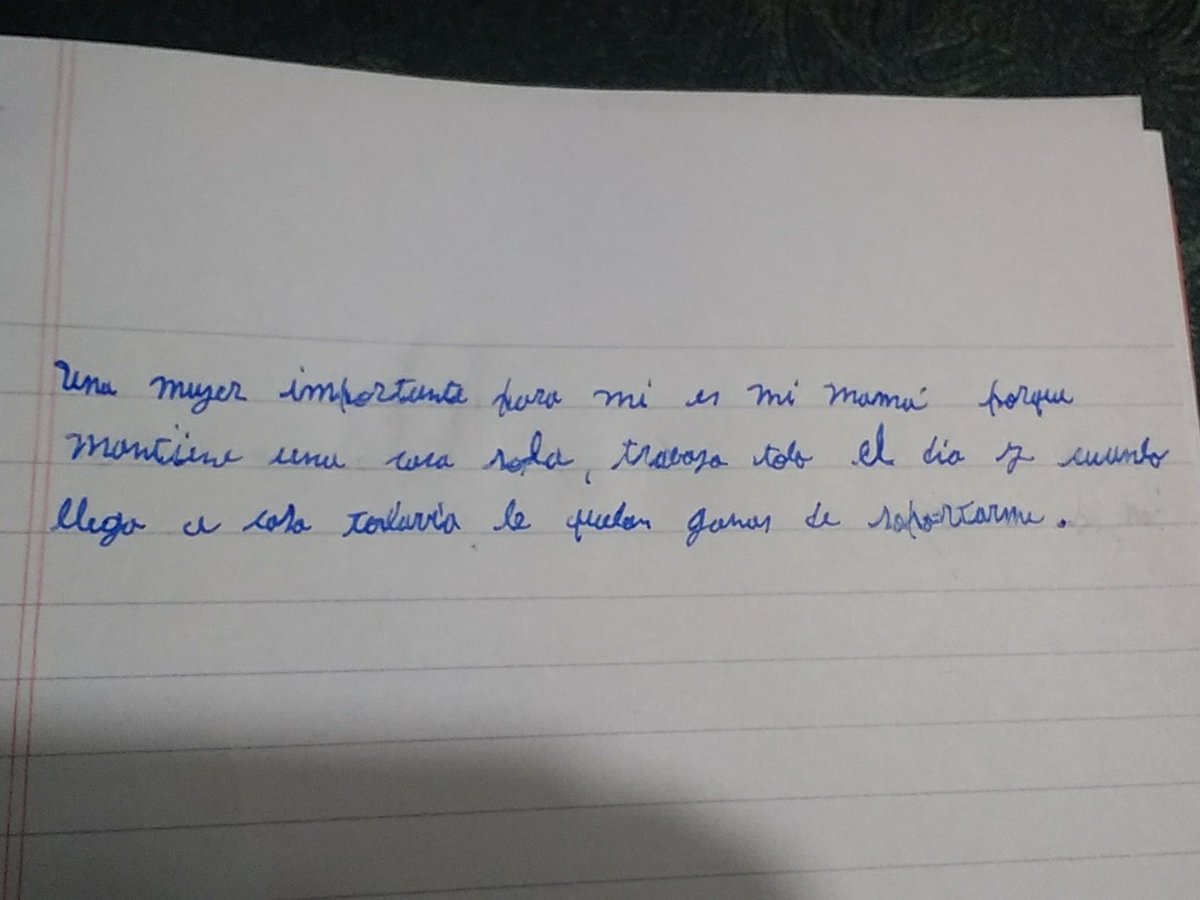 Una mujer importante para mi es mi mamá porque
mantiene una casa sola, trabaja todo el dia y cuando
llega a casa todavia le quedan ganas de soportarme.